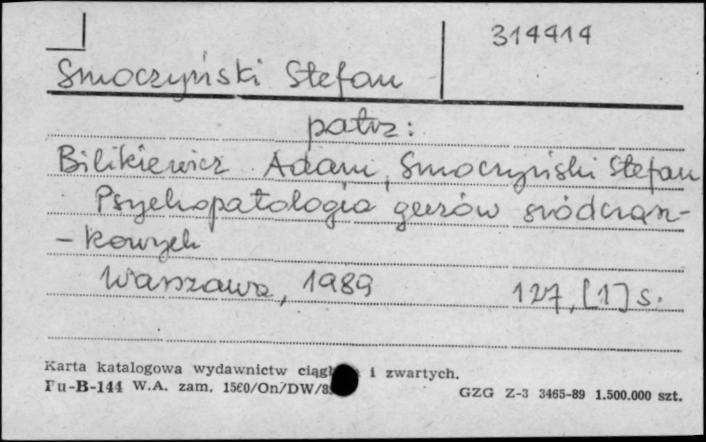 314414
Smoczyński Stefan
patrz:
Bilikiewicz Adam, Smoczyński Stefan
Psychopatologia guzów śródczasz-
- kowych
Warszawa, 1989 127, [1] s.
Karta katalogowa wydawnictw i zwartych.
Pu-B-144 W.A. zam. 1560/On/DW/8
GZG Z-3 3465-89 1.500.000 szt.